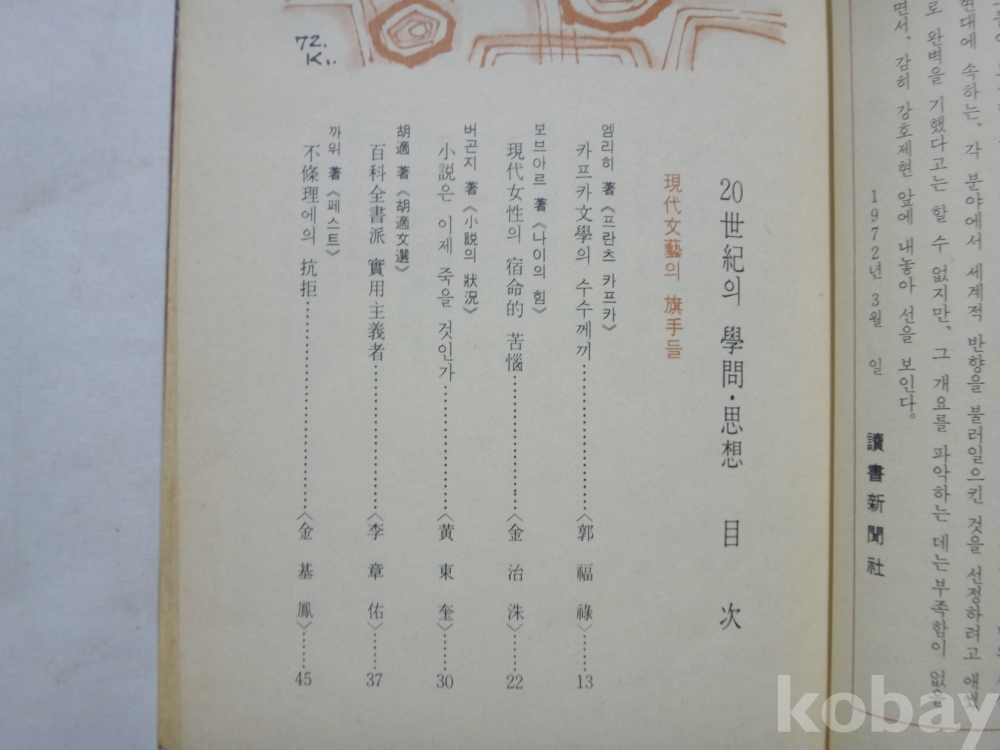 현대에 속하는, 각 분야에서 세계적 반향을 불러일으킨 것을 선정하려고 애썼
로 완벽을 기했다고는 할 수 없지만, 그 개요를 파악하는 데는부족함이 없을
면서, 감히 강호제현 앞에 내놓아 선을 보인다.
1972년 3월 일
讀書新聞社
20世紀의 學問·思想 目次
現代文藝의 旗手들
엠리히 著《프란츠 카프카》
카프카文學의 수수께끼……………〈郭福祿〉……13
보브아르 著《나이의 힘》
現代女性의 宿命的 苦惱……………〈金治洙〉……22
버곤지 著《小說의 狀況》
小說은 이제 죽을 것인가……………〈黃東奎〉……30
胡適 著《胡適文選》
百科全書派 實用主義者……………〈李章佑〉……37
까뮈 著《페스트》
不條理에의 抗拒……………〈金基鳳〉……45
72.
K..
kobay